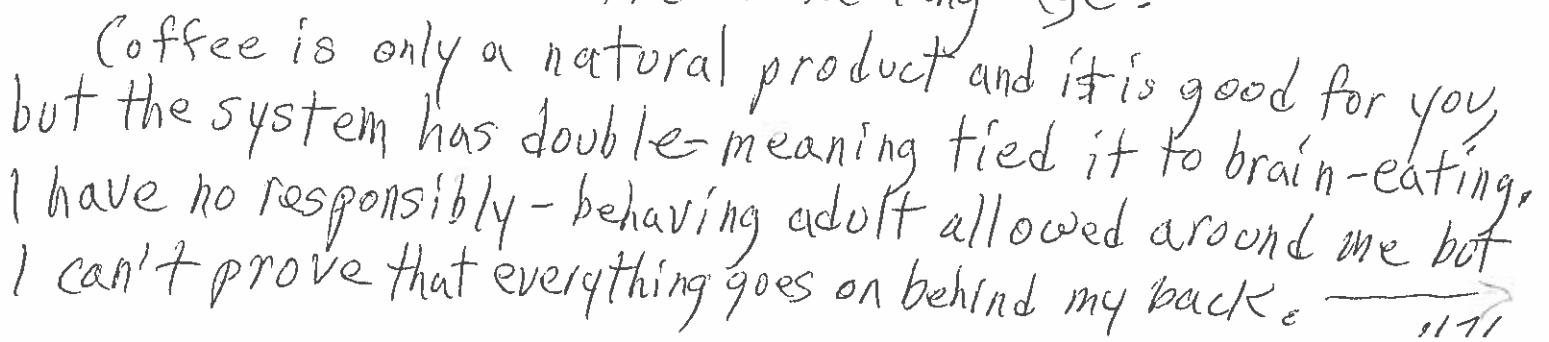 Coffee is only a natural product and it is good for you,
but the system has double-meaning tied it to brain-eating.
I have no responsibly-behaving adult allowed around me but
I can't prove that everything goes on behind my back.